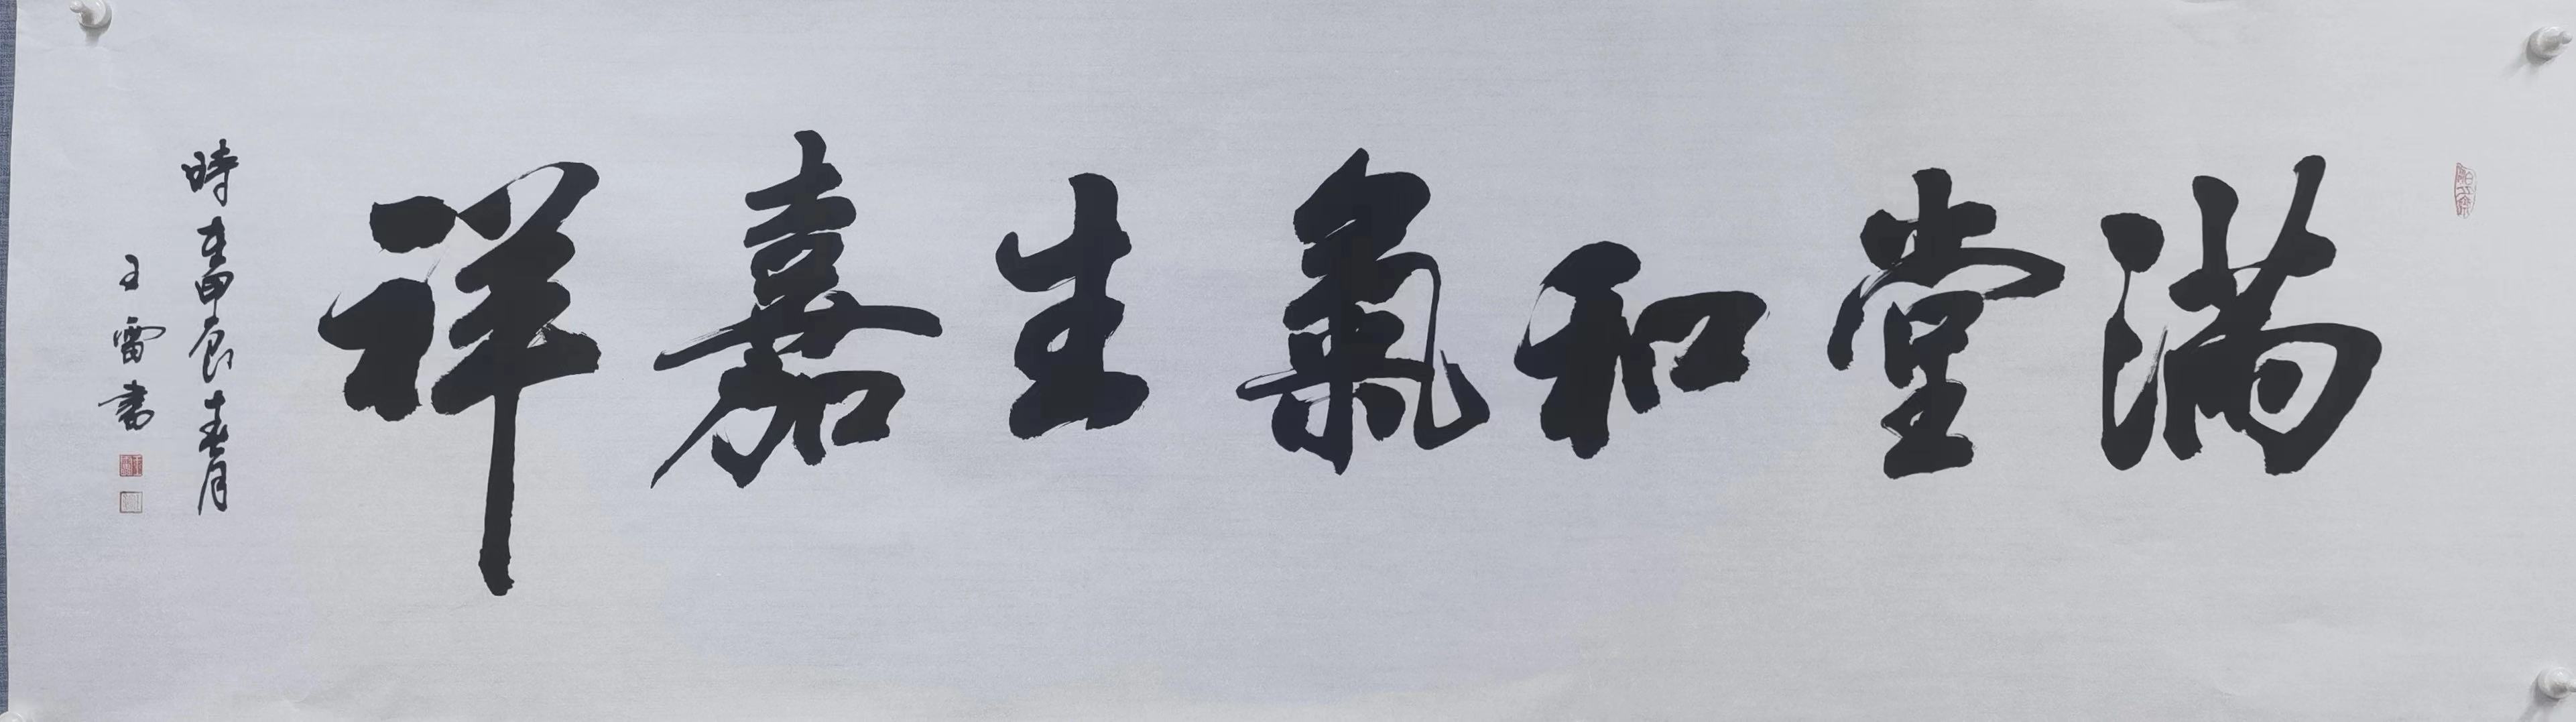 满堂和氣生嘉祥
時在甲辰春月
王雷書